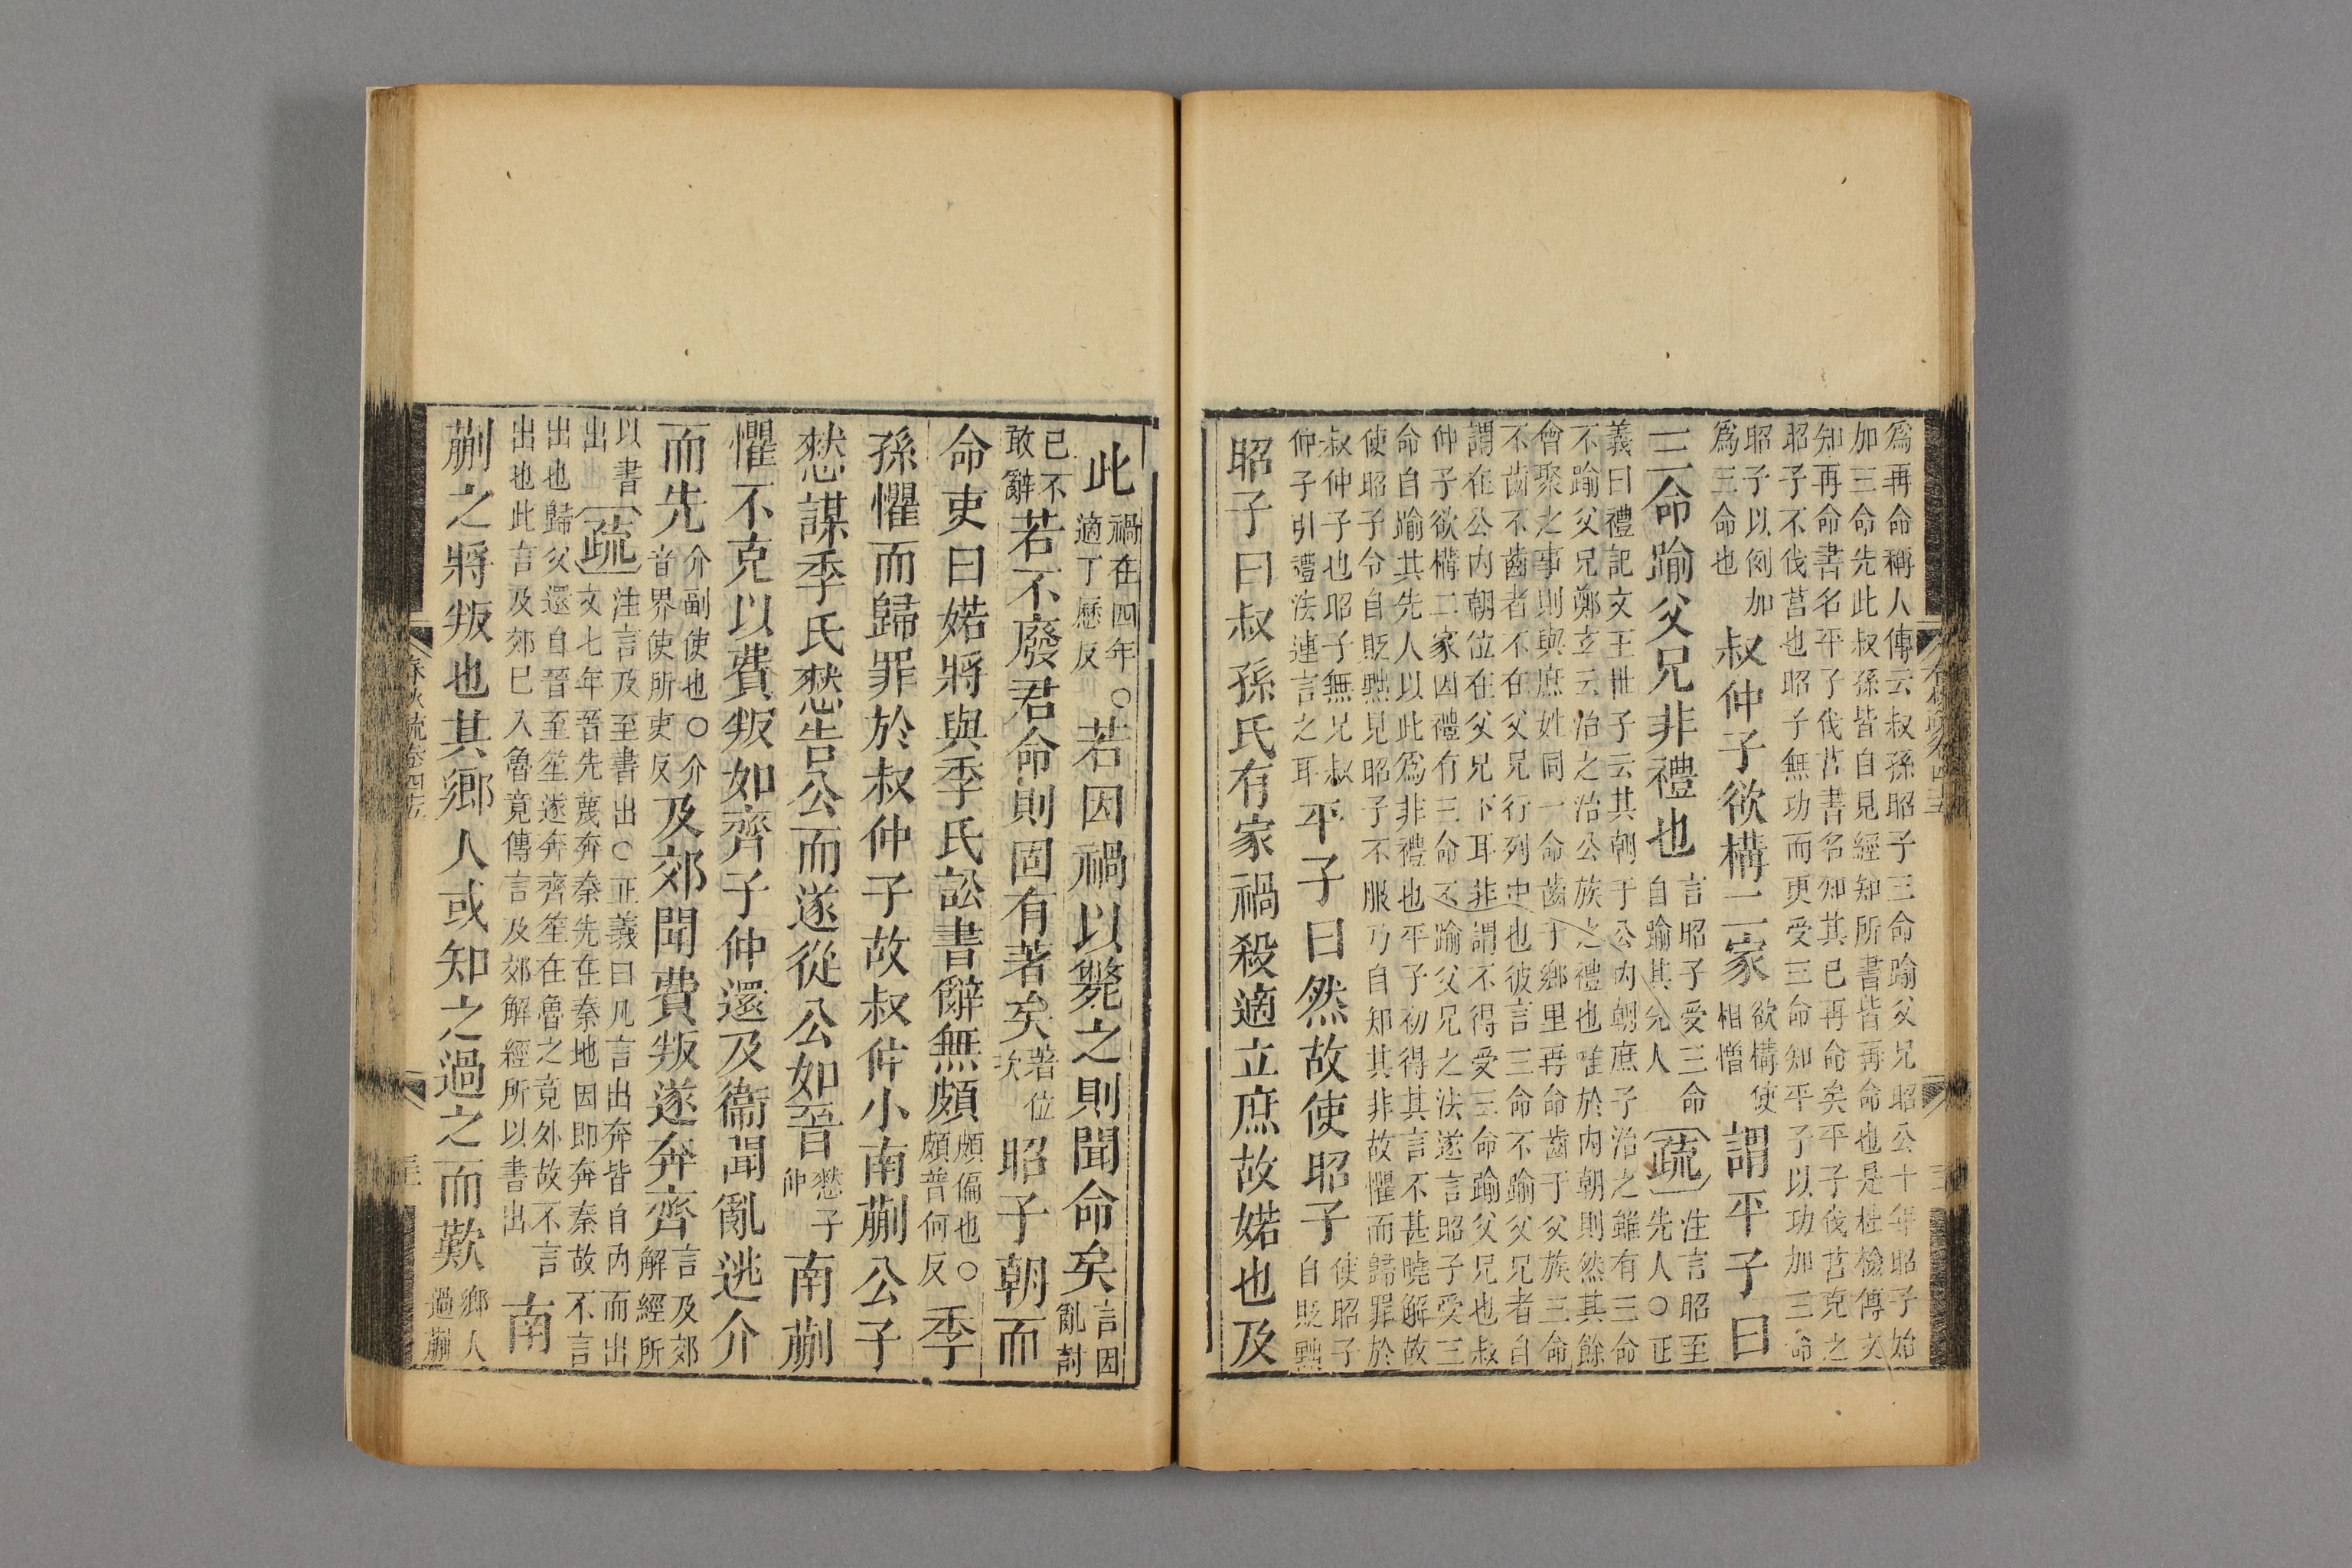 爲再命稱人傳云叔孫昭子三命踰父兄昭公十年昭子始
加三命先此叔孫皆自見經知所書皆再命也是杜檢傳文
知再命書名平子伐莒書名知其已再命矣平子伐莒克之
昭子不伐莒也昭子無功而更受三命知平子以功加三命
昭子以例加
爲三命也
叔仲子欲構二家
欲構使
相憎
謂平子曰
三命踰父兄非禮也
言昭子受三命
自踰其先人
疏
注言昭至
先人○正
義曰禮記文王世子云其朝于公內朝庶子治之雖有三命
不踰父兄鄭玄云治之治公族之禮也唯於內朝則然其餘
會聚之事則與庶姓同一命齒于鄉里再命齒于父族三命
不齒不齒者不在父兄行列中也彼言三命不踰父兄者自
謂在公內朝位在父兄下耳非謂不得受三命踰父兄也叔
仲子欲構二家因禮有三命不踰父兄之法遂言昭子受三
命自踰其先人以此爲非禮也平子初得其言不甚曉解故
使昭子令自貶黜見昭子不服乃自知其非故懼而歸罪於
叔仲子也昭子無兄叔
仲子引禮法連言之耳
平子曰然故使昭子
使昭子
自貶黜
昭子曰叔孫氏有家禍殺適立庶故婼也及
此
禍在四年○
適丁歷反
若因禍以斃之則聞命矣
言因
亂討
已不
敢辭
若不廢君命則固有著矣
著位
次
昭子朝而
命吏曰婼將與季氏訟書辭無頗
頗偏也○
頗普何反
季
孫懼而歸罪於叔仲子故叔仲小南蒯公子
憖謀季氏憖告公而遂從公如晉
憖子
仲
南蒯
懼不克以費叛如齊子仲還及衞聞亂逃介
而先
介副使也○介
音界使所吏反
及郊聞費叛遂奔齊
言及郊
解經所
以書
出
疏
注言及至書出○正義曰凡言出奔皆自內而出
文七年晉先蔑奔秦先在秦地因即奔秦故不言
出也歸父還自晉至笙遂奔齊笙在魯之竟外故不言
出也此言及郊巳入魯竟傳言及郊解經所以書出
南
蒯之將叛也其鄉人或知之過之而歎
鄉人
過蒯
春秋疏卷四五